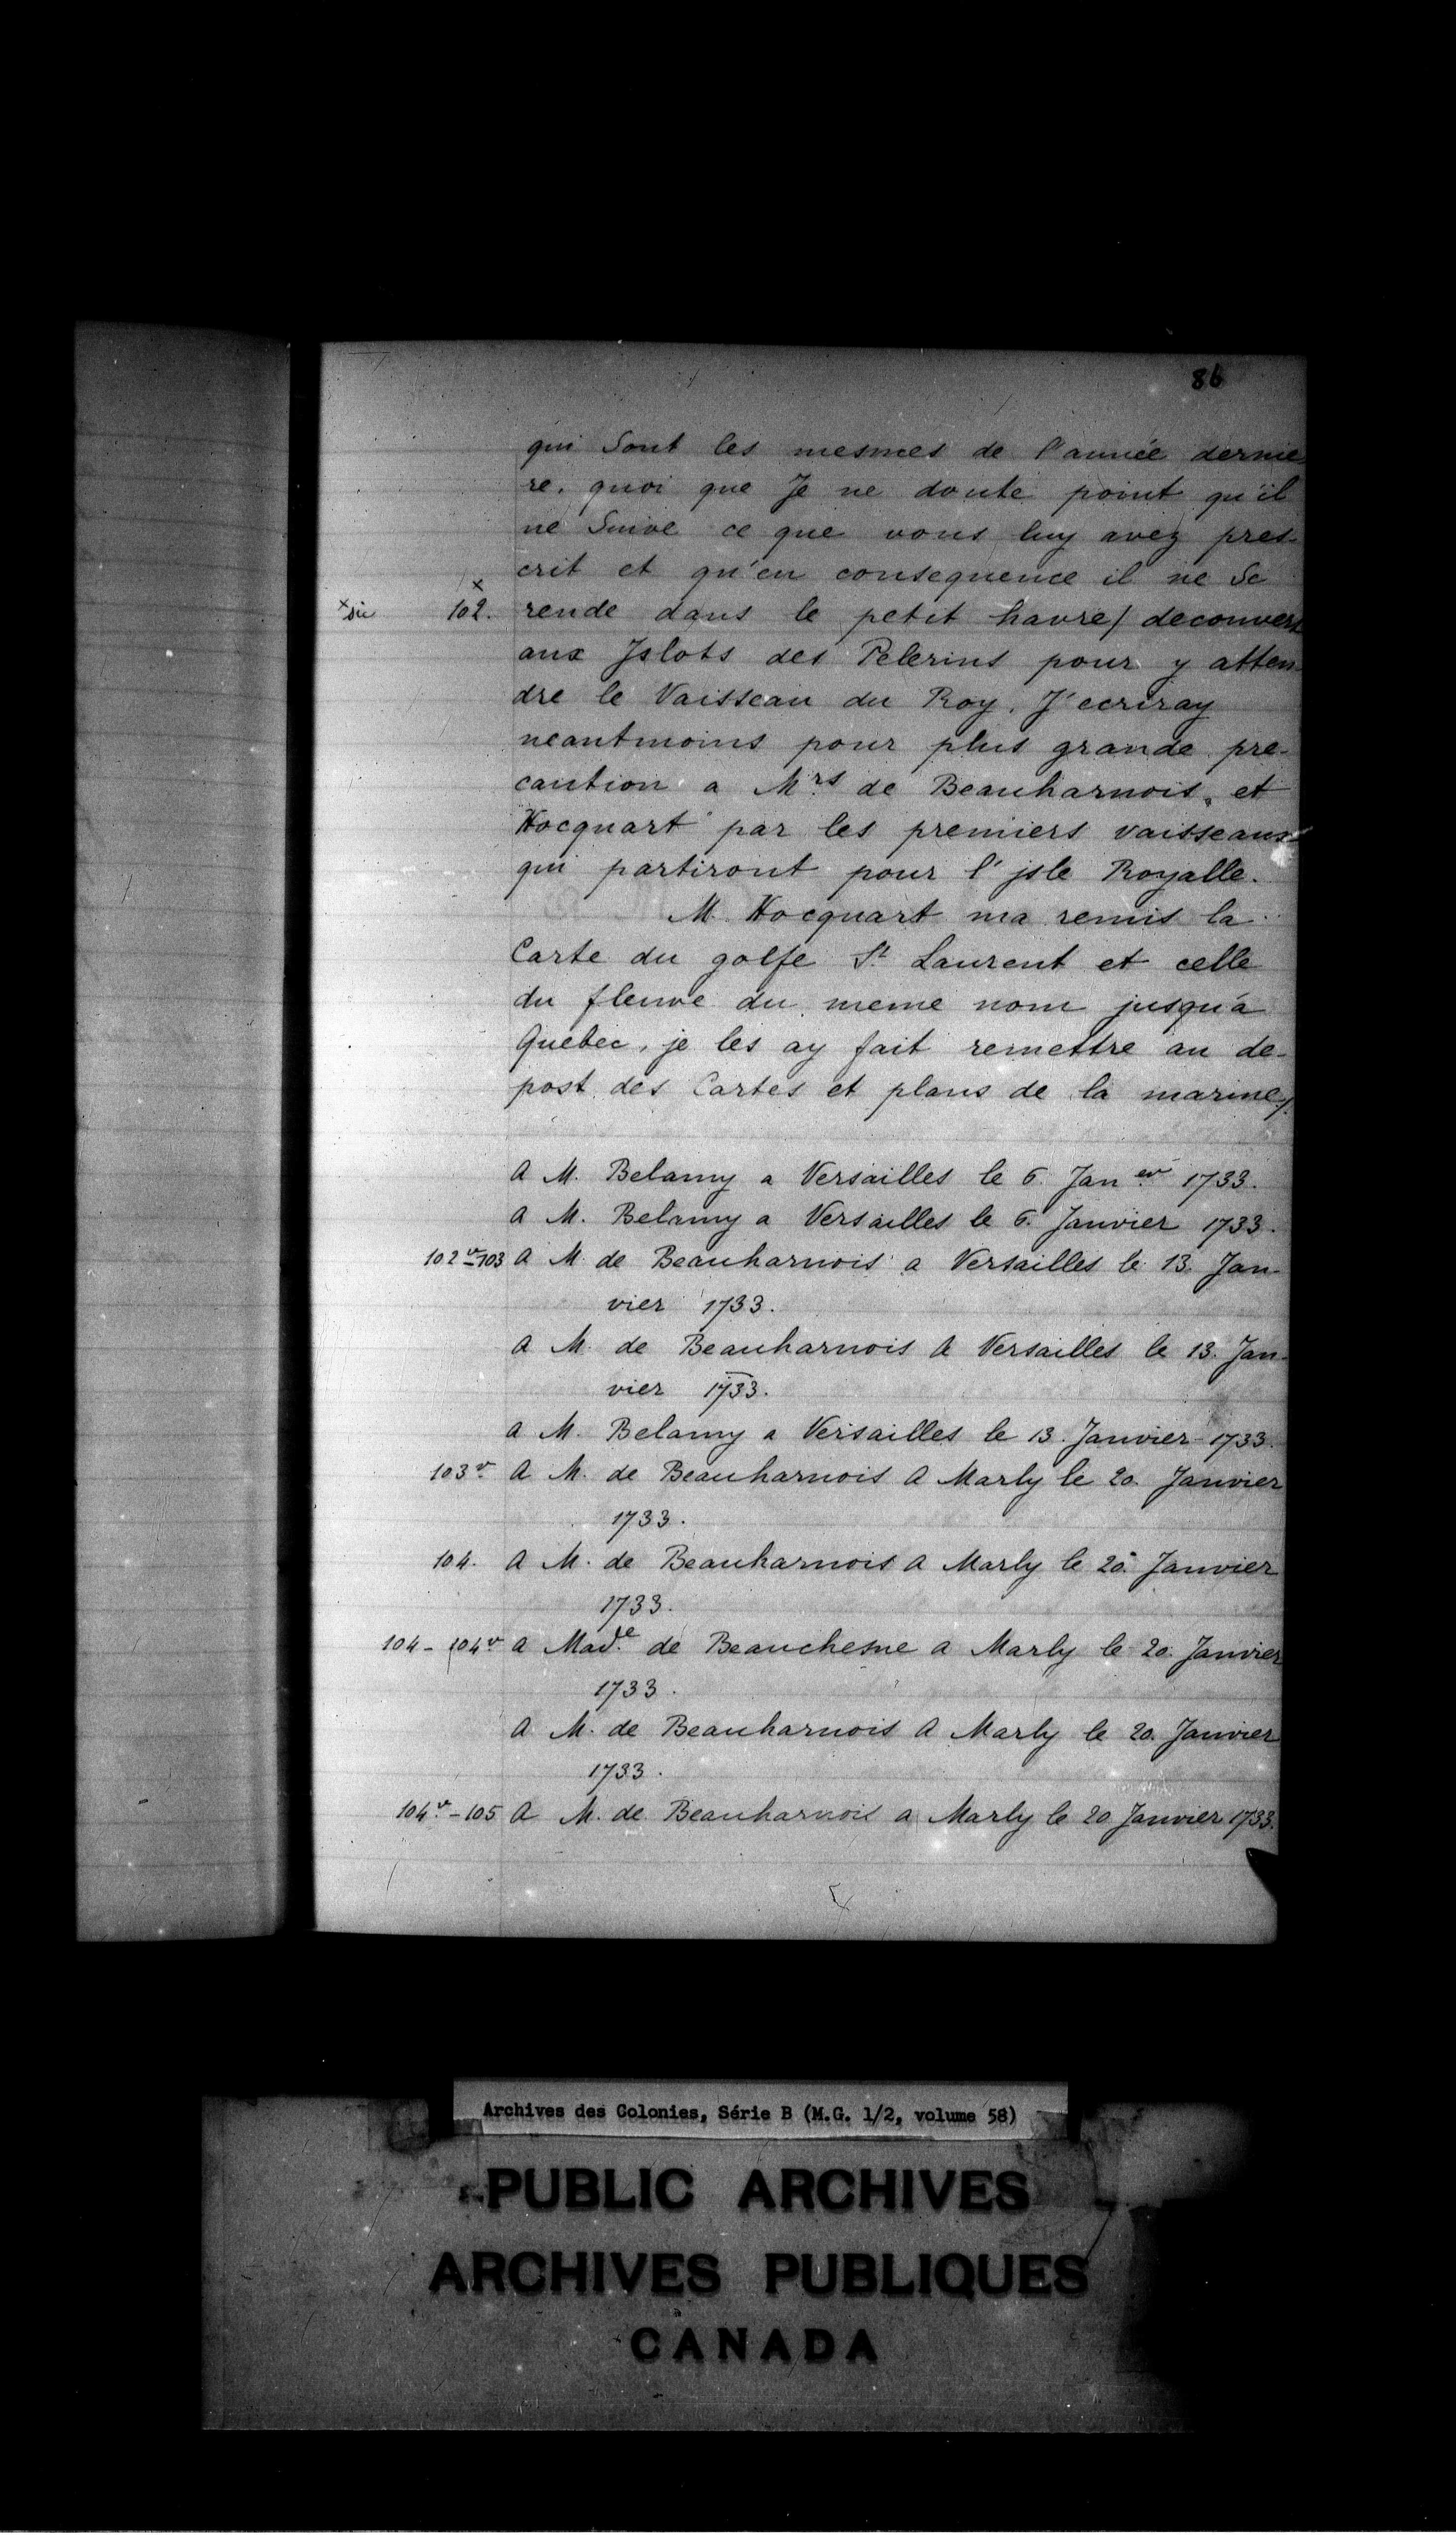 86
qui Sont les mesmes de l'année dernie
re. quoi que Je ne doute point qu'il
ne Suive ce que vous luy avez pres-
crit et qu'en consequence il ne Se
×sic 102.× rende dans le petit havre/ decouvert
aux Jslots des Pelerins pour y atten-
dre le Vaisseau du Roy. J'ecriray
neantmoins pour plus grande pre-
caution a Mrs de Beauharnois, et
Hocquart par les premiers vaisseaux
qui partiront pour l'jsle Royalle.
M. Hocquart ma remis la
Carte du golfe St Laurent et celle
du fleuve du meme nom jusqu'a
Quebec, je les ay fait remettre au de-
post des Cartes et plans de la marine/.
A M. Belamy a Versailles le 6. Janer 1733.
A M. Belamy a Versailles le 6. Janvier 1733.
102v-103 A M. de Beauharnois a Versailles le 13. Jan-
vier 1733.
A M. de Beauharnois A Versailles le 13. Jan-
vier 1733.
A M. Belamy a Versailles le 13. Janvier 1733.
103v. A M. de Beauharnois A Marly le 20. Janvier
1733.
104. A M. de Beauharnois A Marly le 20. Janvier
1733.
104-104v a Made. de Beauchesne a Marly le 20. Janvier
1733.
A M. de Beauharnois A Marly le 20. Janvier
1733.
104v.-105 A M. de Beauharnois a Marly le 20 Janvier 1733.
Archives des Colonies, Série B (M.G. 1/2, volume 58)
PUBLIC ARCHIVES
ARCHIVES PUBLIQUES
CANADA